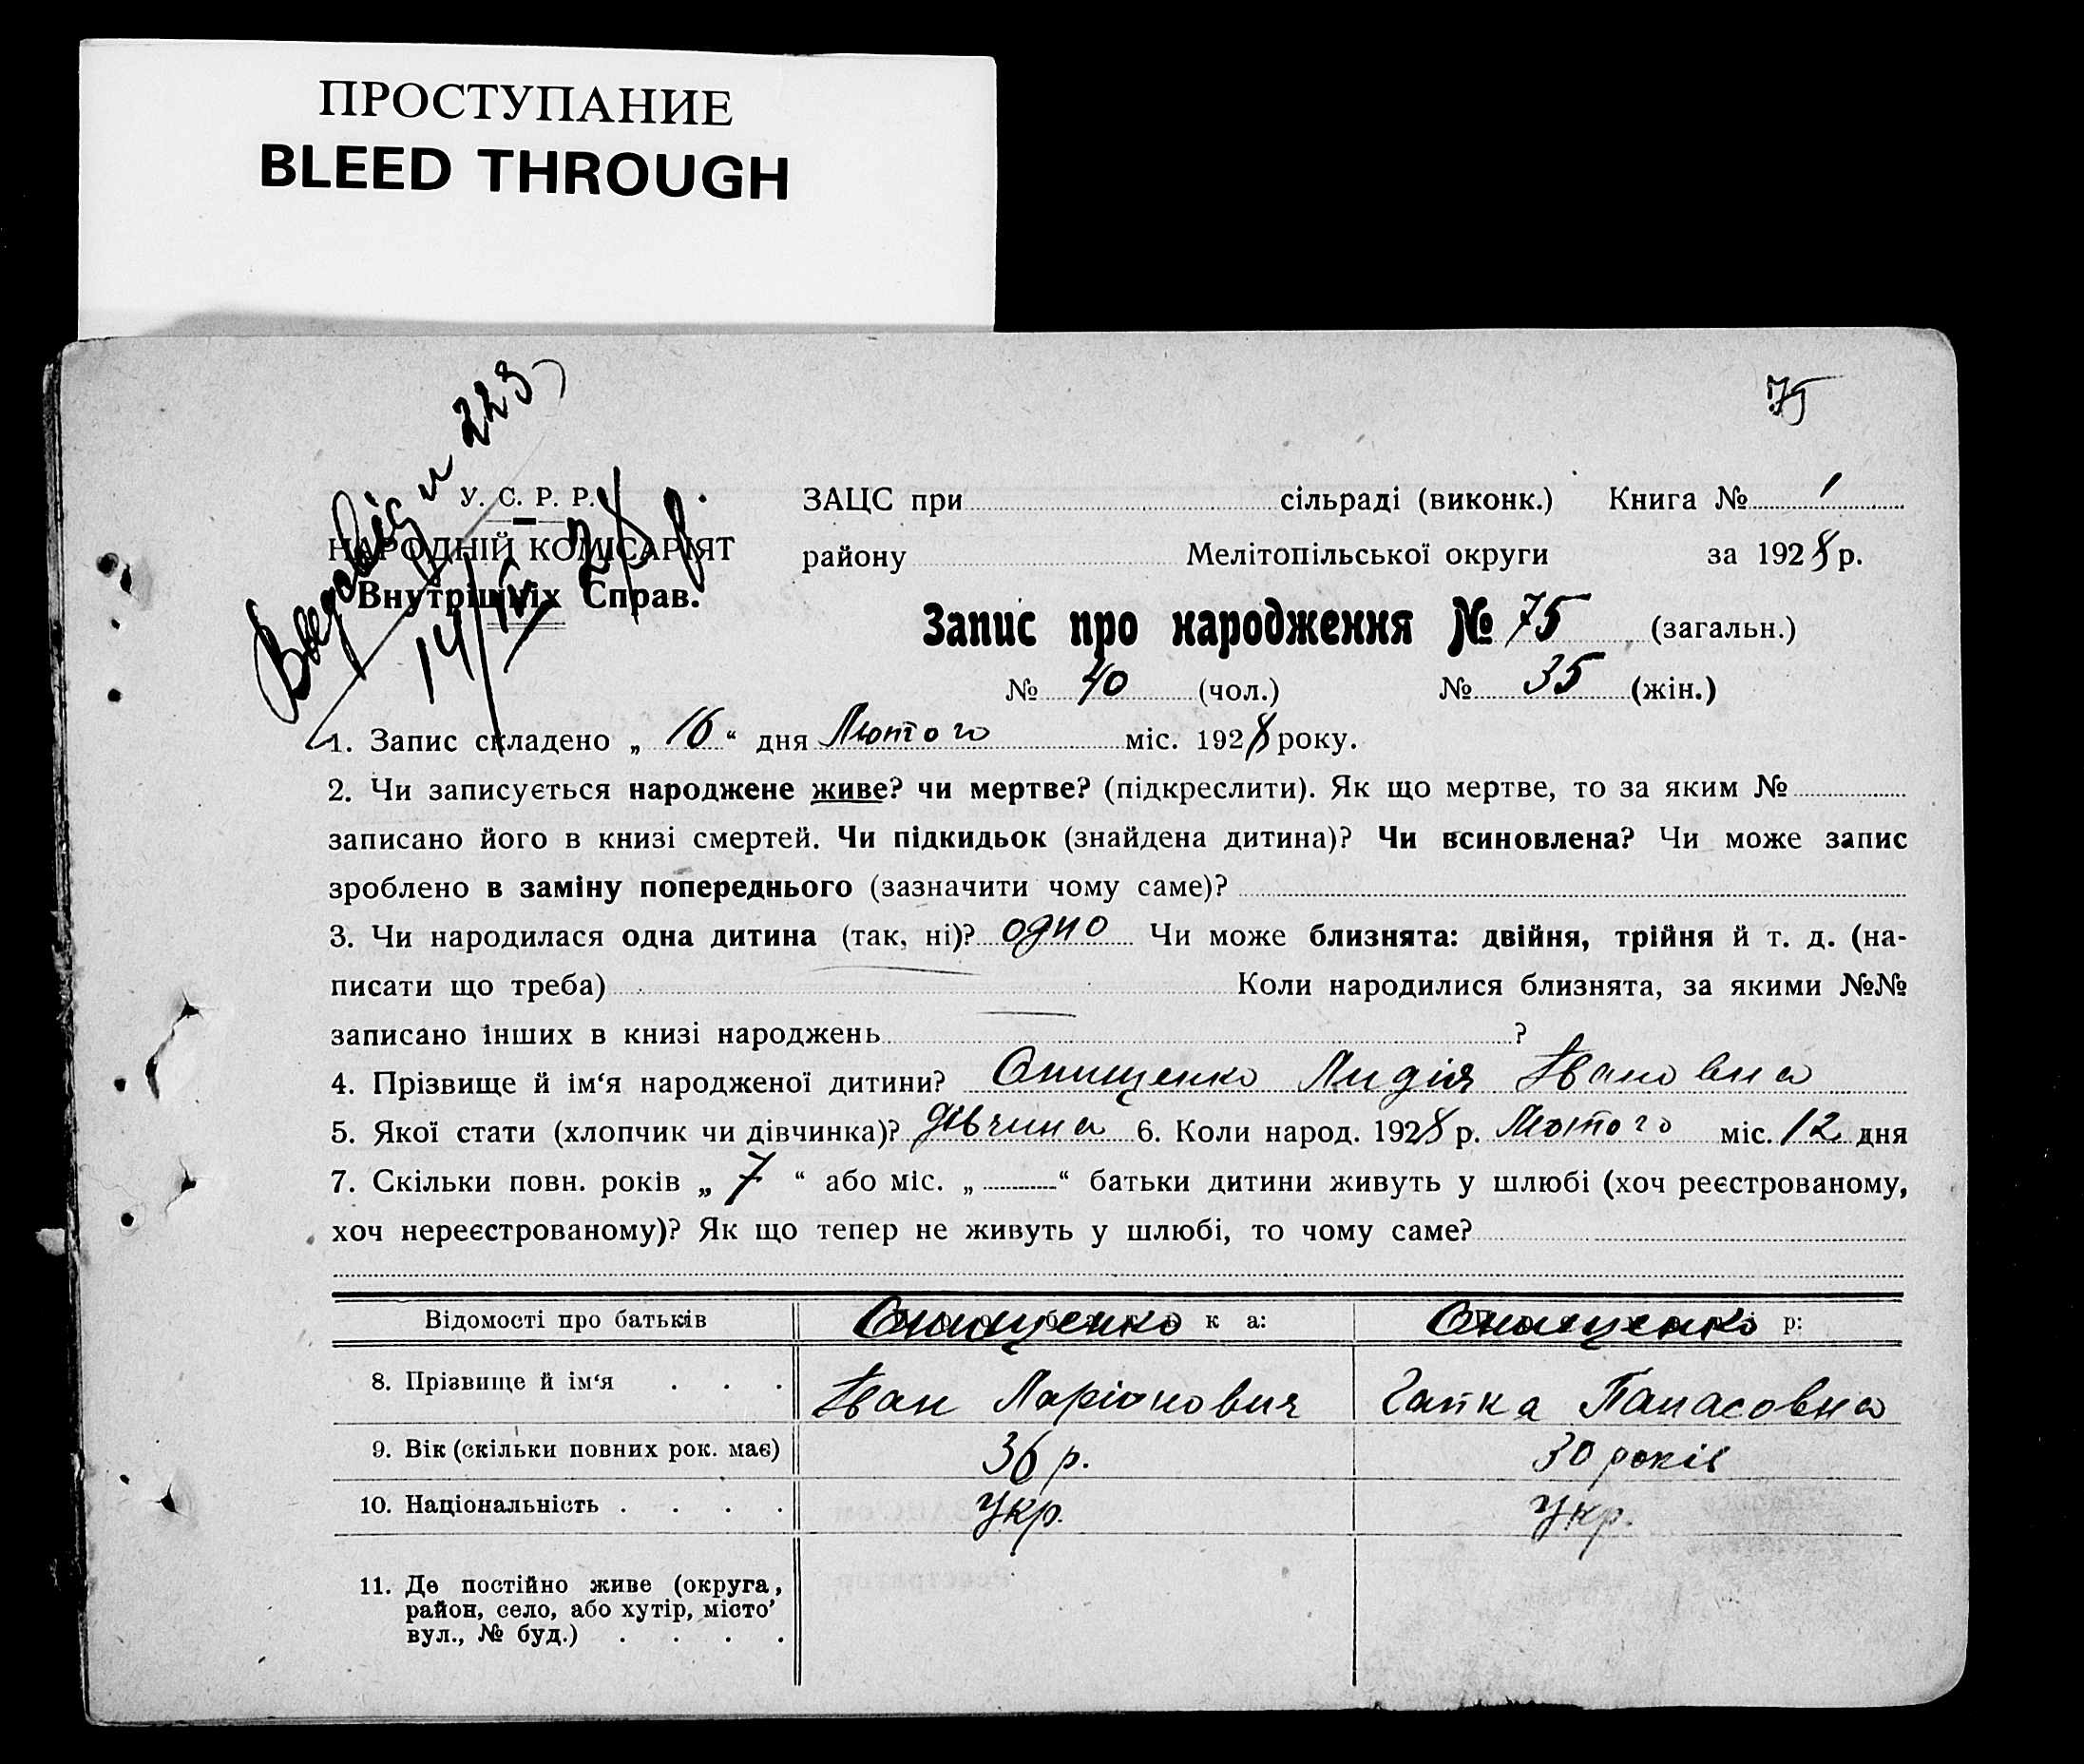 ПРОСТУПАНИЕ
BLEED THROUGH
75
№ 223
14/IV 28 р.
У. С. Р. Р.
НАРОДНІЙ КОМІСАРІЯТ
Внутрішніх Справ.
ЗАЦС при сільраді (виконк.) Книга № 1
району Мелітопільської округи за 1928 р.
Запис про народження № 75 (загальн.)
№ 40 (чол.) № 35 (жін.)
1. Запис складено „ 16 “ дня Лютого міс. 1928 року.
2. Чи записується народжене живе? чи мертве? (підкреслити). Як що мертве, то за яким №
записано його в книзі смертей. Чи підкидьок (знайдена дитина)? Чи всиновлена? Чи може запис
зроблено в заміну попереднього (зазначити чому саме)?
3. Чи народилася одна дитина (так, ні)? одно Чи може близнята: двійня, трійня й т. д. (на-
писати що треба) Коли народилися близнята, за якими №№
записано інших в книзі народжень ?
4. Прізвище й ім‘я народженої дитини? Онищенко Лидія Івановна
5. Якої стати (хлопчик чи дівчинка)? дівчина 6. Коли народ. 1928 р. Лютого міс. 12 дня
7. Скільки повн. років „ 7 “ або міс. „ “ батьки дитини живуть у шлюбі (хоч реєстрованому,
хоч нереєстрованому)? Як що тепер не живуть у шлюбі, то чому саме?
Відомості про батьків Онищенко ка: Онищенко р:
8. Прізвище й ім‘я . . . Іван Ларіонович Гапка Панасовна
9. Вік (скільки повних рок. має) 36 р. 30 років
10. Національність . . . . Укр. Укр.
11. Де постійно живе (округа,
район, село, або хутір, місто’
вул., № буд.) . . . .